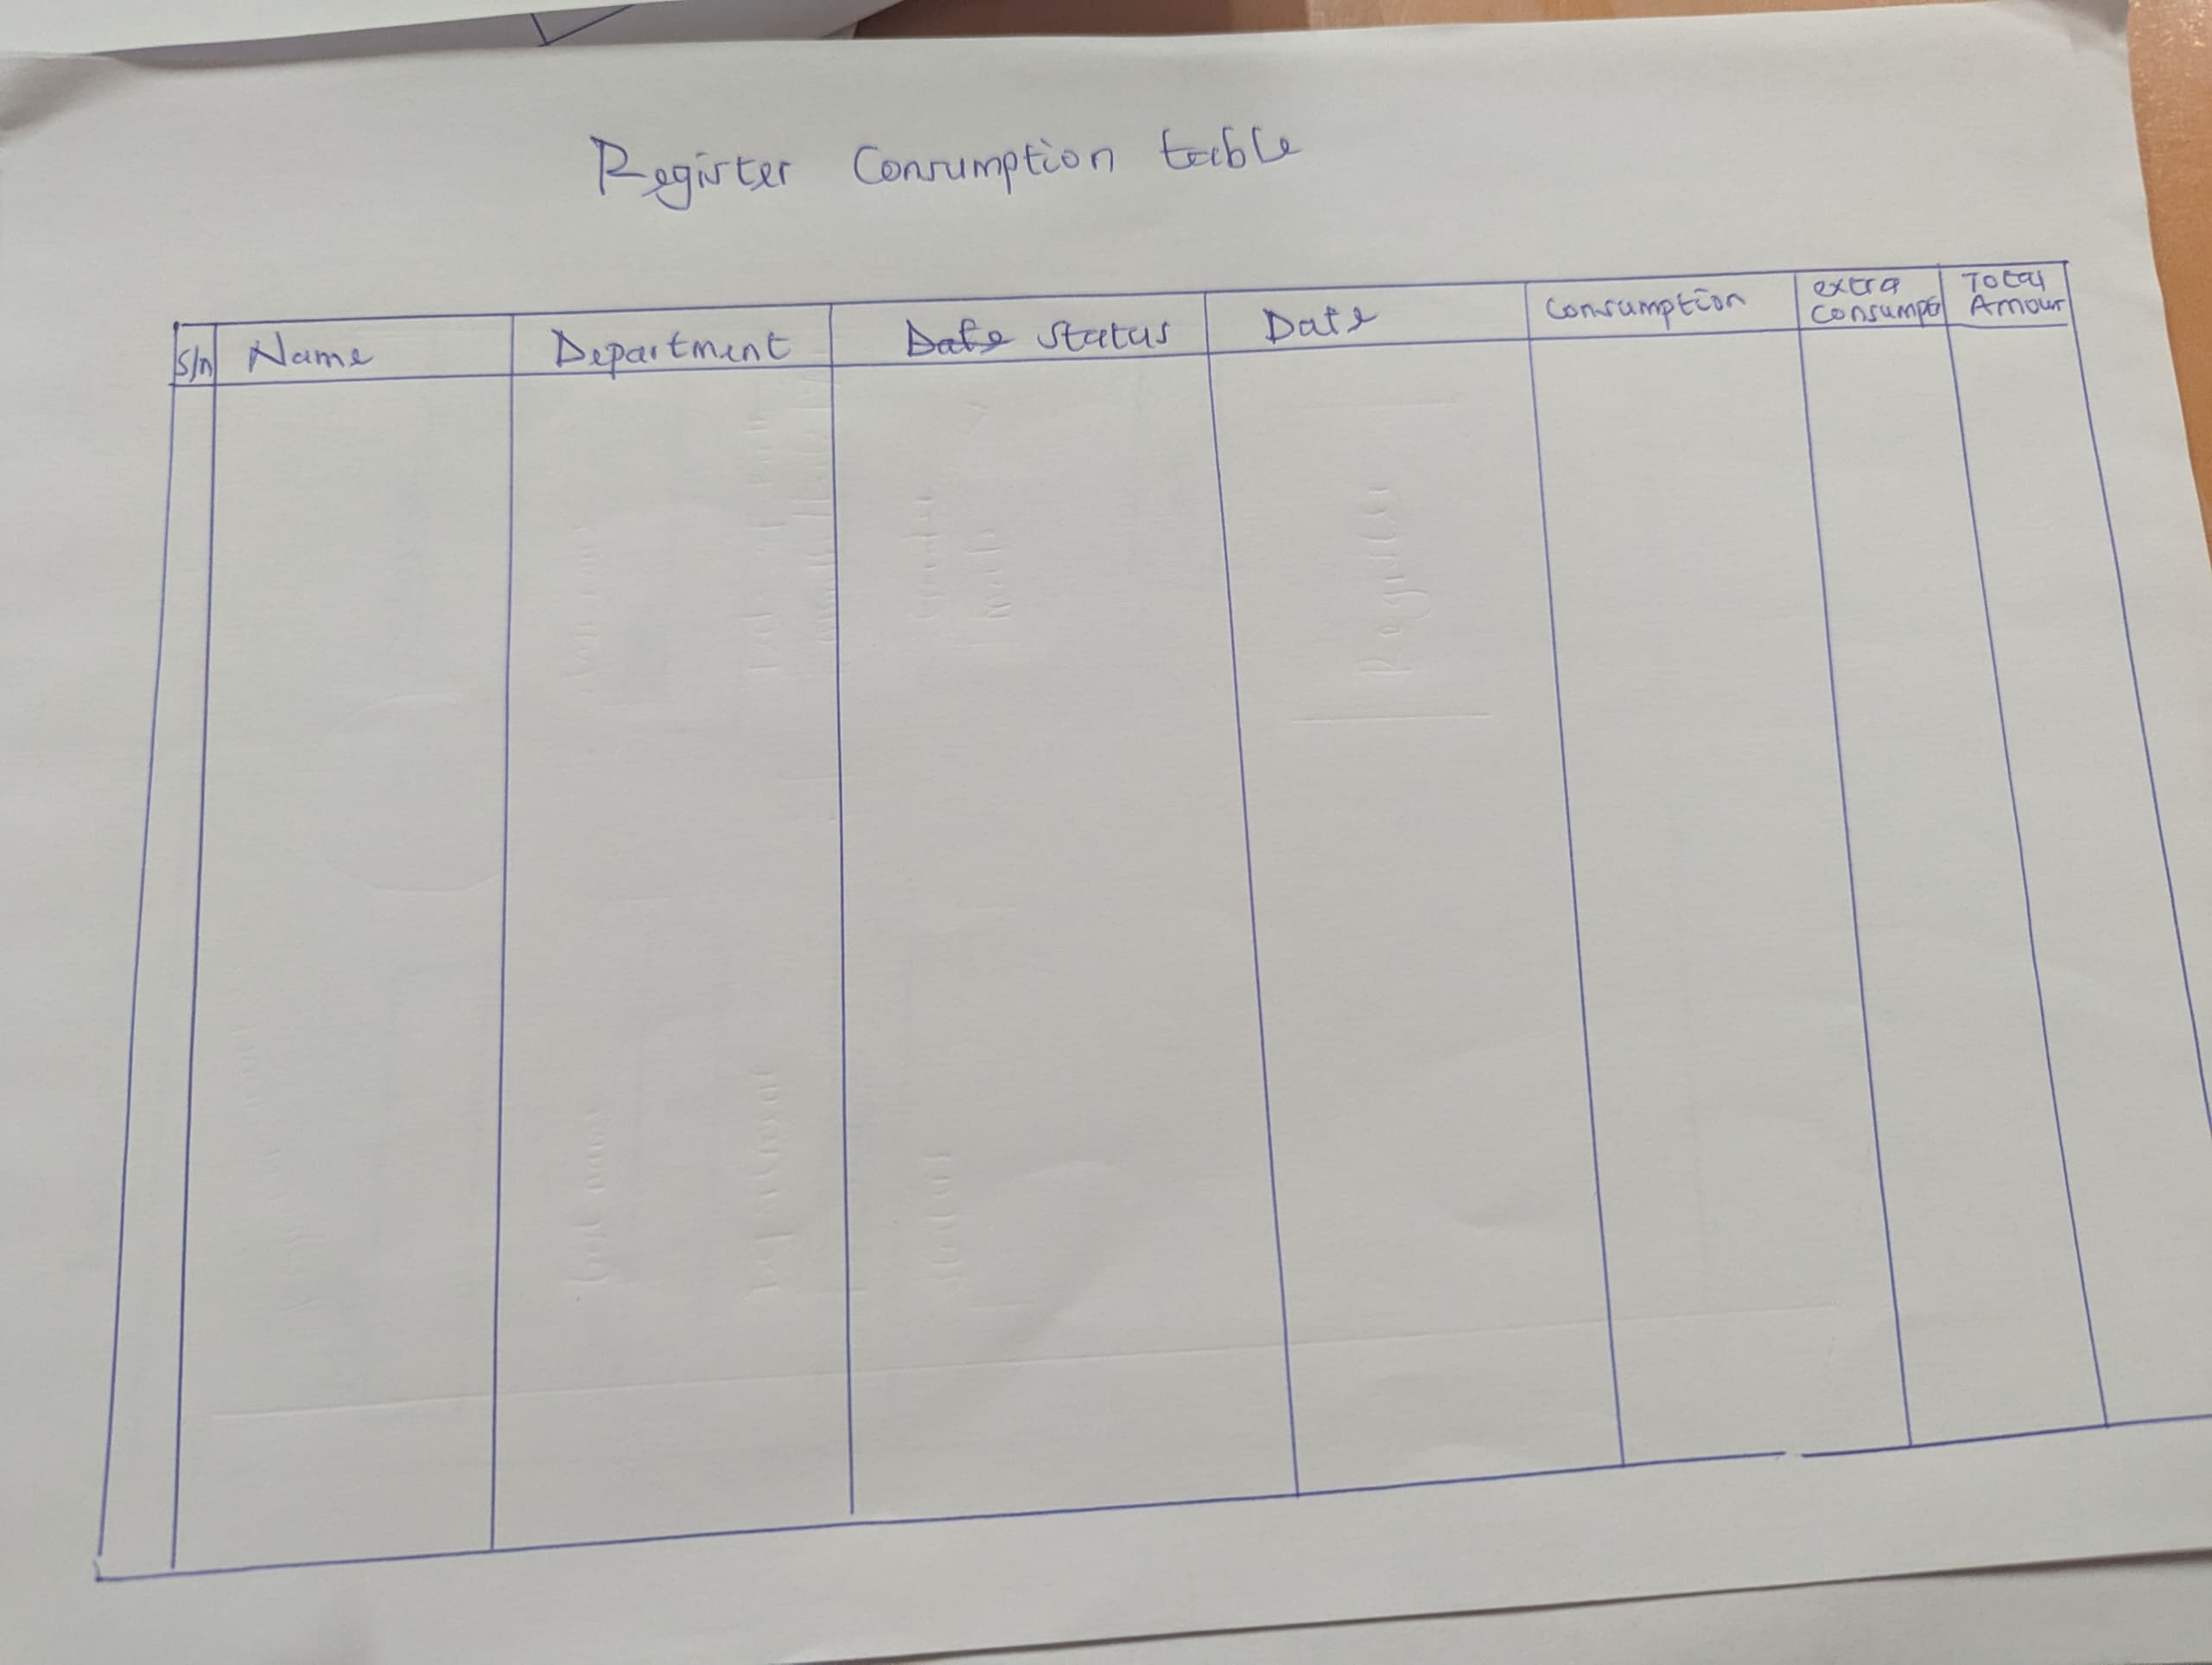 Register Consumption table
S/n Name Department Date Status Date Consumption extra Consumpti Total Amour